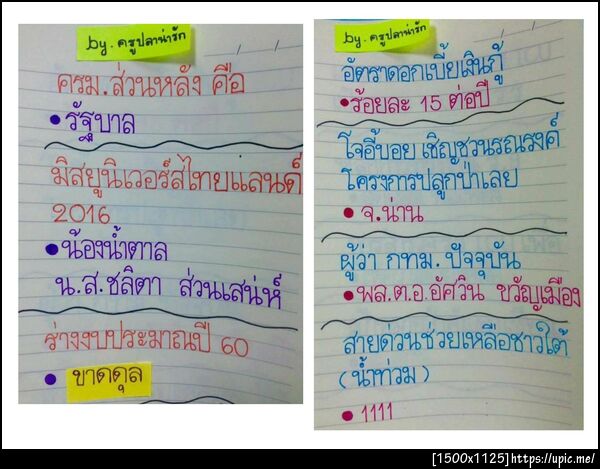 by. ครูปลาน่ารัก
ครม.ส่วนหลัง คือ
รัฐบาล
มิสยูนิเวอร์สไทยแลนด์
2016
น้องน้ำตาล
น.ส.ชลิตา ส่วนเสน่ห์
ร่างงบประมาณปี 60
ขาดดุล
by. ครูปลาน่ารัก
อัตราดอกเบี้ยเงินกู้
ร้อยละ 15 ต่อปี
โจอี้บอย เชิญชวนรณรงค์
โครงการปลูกป่าเลย
จ.น่าน
ผู้ว่า กทม. ปัจจุบัน
พล.ต.อ.อัศวิน ขวัญเมือง
สายด่วนช่วยเหลือชาวใต้
(น้ำท่วม)
1111
[1500x1125]https://upic.me/